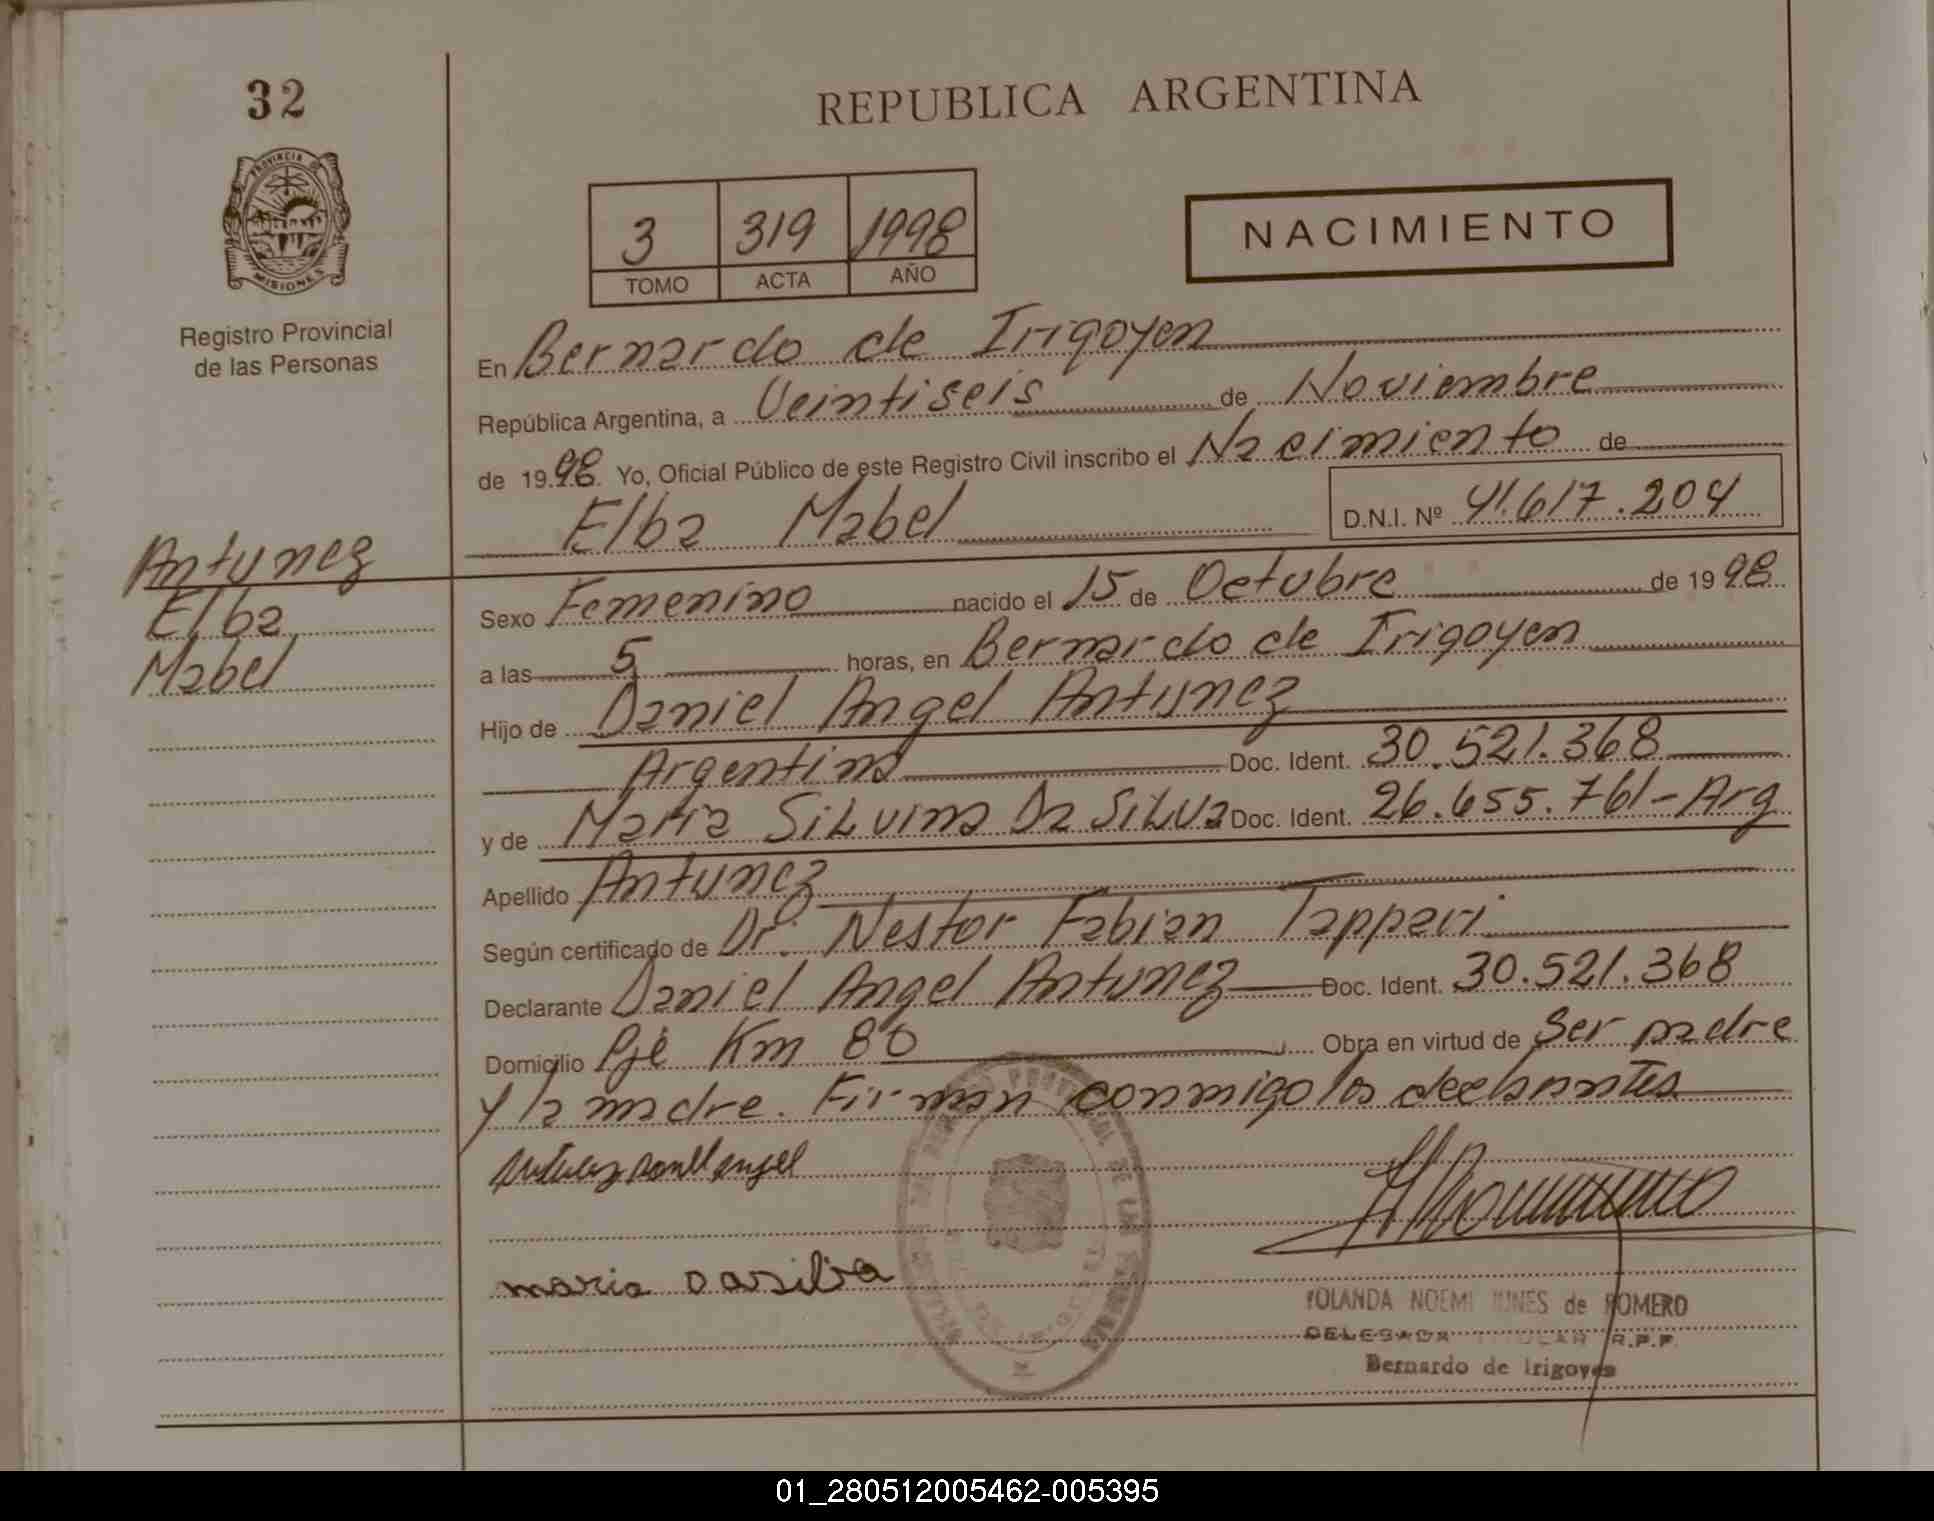 32
PROVINCIA DE
MISIONES
Registro Provincial
de las Personas
REPUBLICA ARGENTINA
3 319 1998
TOMO ACTA AÑO
NACIMIENTO
En Bernardo de Irigoyen
República Argentina, a Veintiseis de Noviembre
de 19 98 Yo, Oficial Público de este Registro Civil inscribo el Nacimiento de
Elba Mabel D.N.I. Nº 41.617.204
Antunez
Elba
Mabel
Sexo Femenino nacido el 15 de Octubre de 19 98
a las 5 horas, en Bernardo de Irigoyen
Hijo de Daniel Angel Antunez
Argentino Doc. Ident. 30.521.368
y de Maria SiLvina Da SiLva Doc. Ident. 26.655.761-Arg
Apellido Antunez
Según certificado de Dr. Nestor Fabian Tappari
Declarante Daniel Angel Antunez Doc. Ident. 30.521.368
Domicilio Pje Km 80 Obra en virtud de Ser padre
y la madre. Firman conmigo los declarantes
maria dasilva
YOLANDA NOEMI NUNES de ROMERO
DELEGADA TITULAR R.P.P.
Bernardo de Irigoyen
01_280512005462-005395